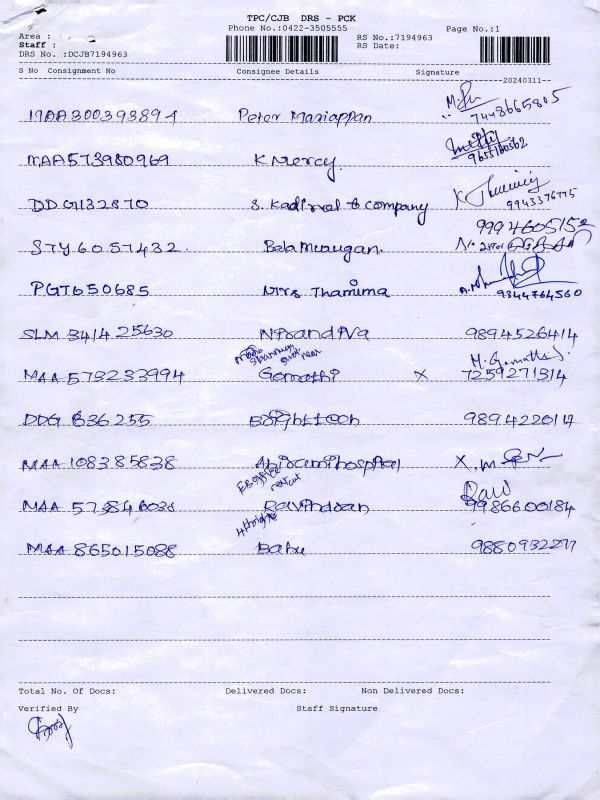 TPC/CJB DRS - PCK
Phone No.:0422-3505555
Area :
Staff :
DRS No. :DCJB7194963
RS No.:7194963
RS Date:
Page No.:1
S No Consignment No Consignee Details Signature
20240311
MAA300393894 Peter Mariappan 7448665905
MAA573980969 K Mercy 9655160562
DDG132870 S. Kadirvel & company 9943376775
STY6057432. BalaMurugan. 9994605152
PGT650685 Mrs Thamima 9344764560
SLM 341425630 Nirandiva 9894526414
MAA 573233994 Gomathi X M. Gomathi
7259271314
DDG 636255 Brighttech 989422014
MAA 108385838 Abiramihospital X.
MAA 573846036 Ravindran Ravi
9986600184
MAA 865015088 Babu 9880932277
Total No. Of Docs: Delivered Docs: Non Delivered Docs:
Verified By Staff Signature